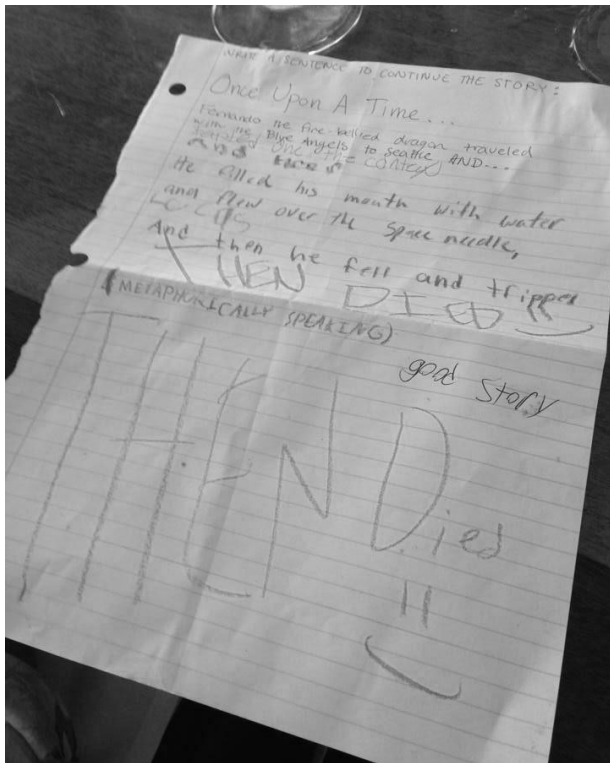 WRITE A SENTENCE TO CONTINUE THE STORY:
Once Upon A Time...
Fernando the fire-bellied dragon traveled
with the Blue Angels to Seattle AND...
He filled his mouth with water
and flew over the space needle,
And then he fell and tripped
THEN DIED
(METAPHORICALLY SPEAKING)
good story
THEN Died